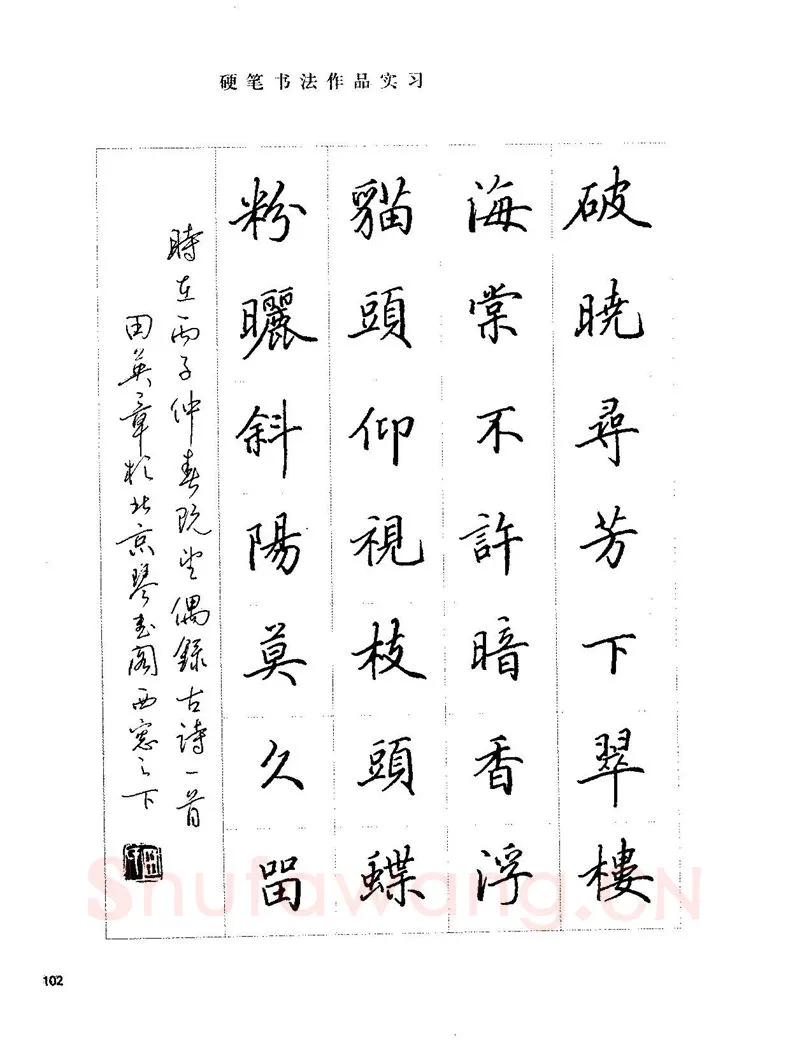 硬笔书法作品实习
破曉尋芳下翠樓
海棠不許暗香浮
貓頭仰視枝頭蝶
粉曬斜陽莫久留
時在丙子仲春既望偶錄古詩一首
田英章於北京琴書閣西窗之下
Shufawang.CN
102